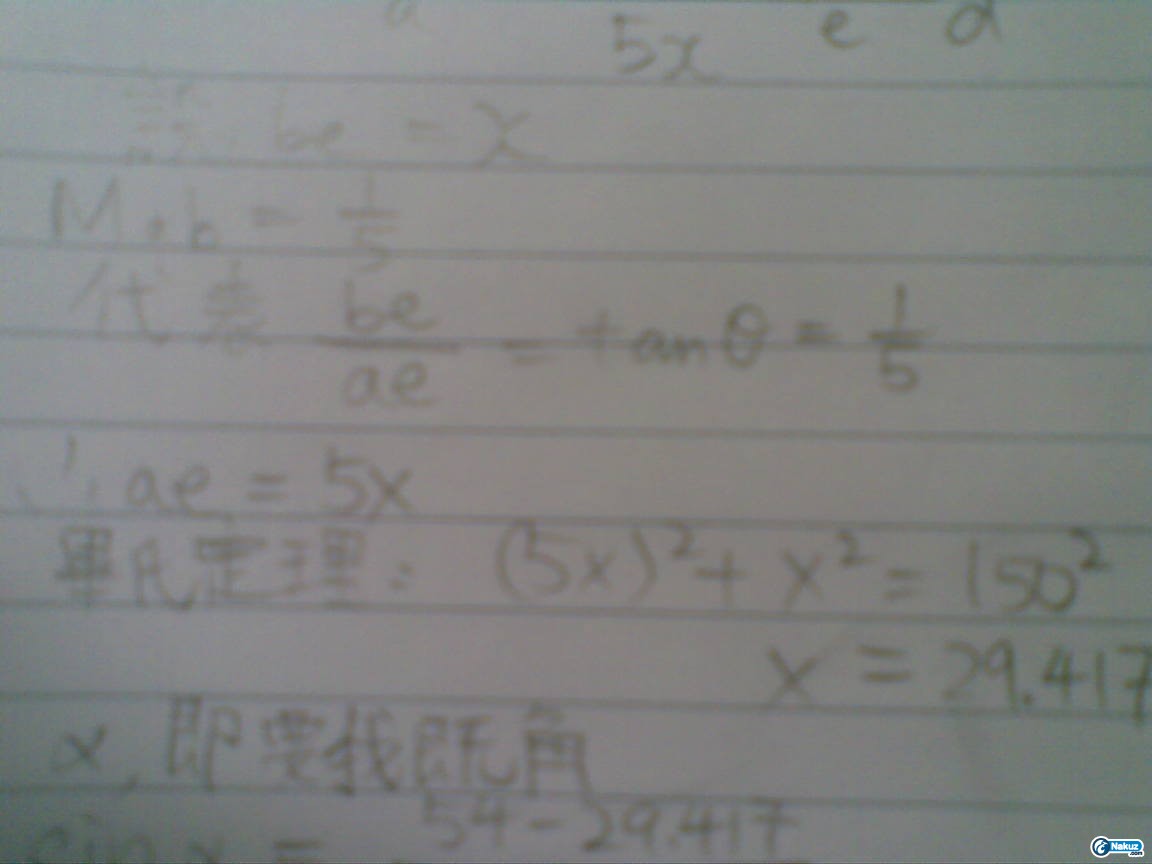 a 5x e d
設 be = x
Mab = 1/5
代表 be/ae = tan θ = 1/5
∴ ae = 5x
畢氏定理: (5x)² + x² = 150²
x = 29.417
α, 即要找既角
sin α = 54 - 29.417
Nakuz.com